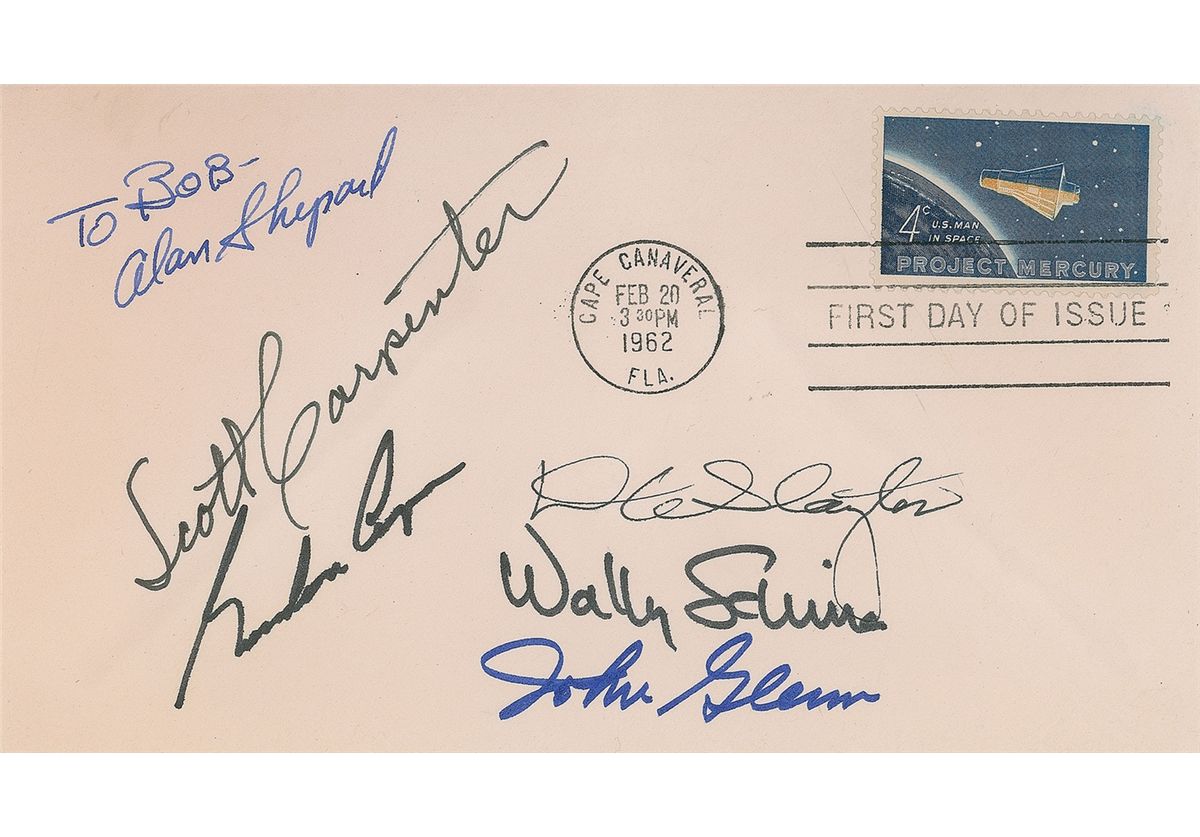 To BOB-
Alan Shepard
Scott Carpenter
Gordon Cooper
CAPE CANAVERAL
FEB 20
3 30 PM
1962
FLA.
4c U.S. MAN
IN SPACE
PROJECT MERCURY
FIRST DAY OF ISSUE
Deke Slayton
Wally Schirra
John Glenn